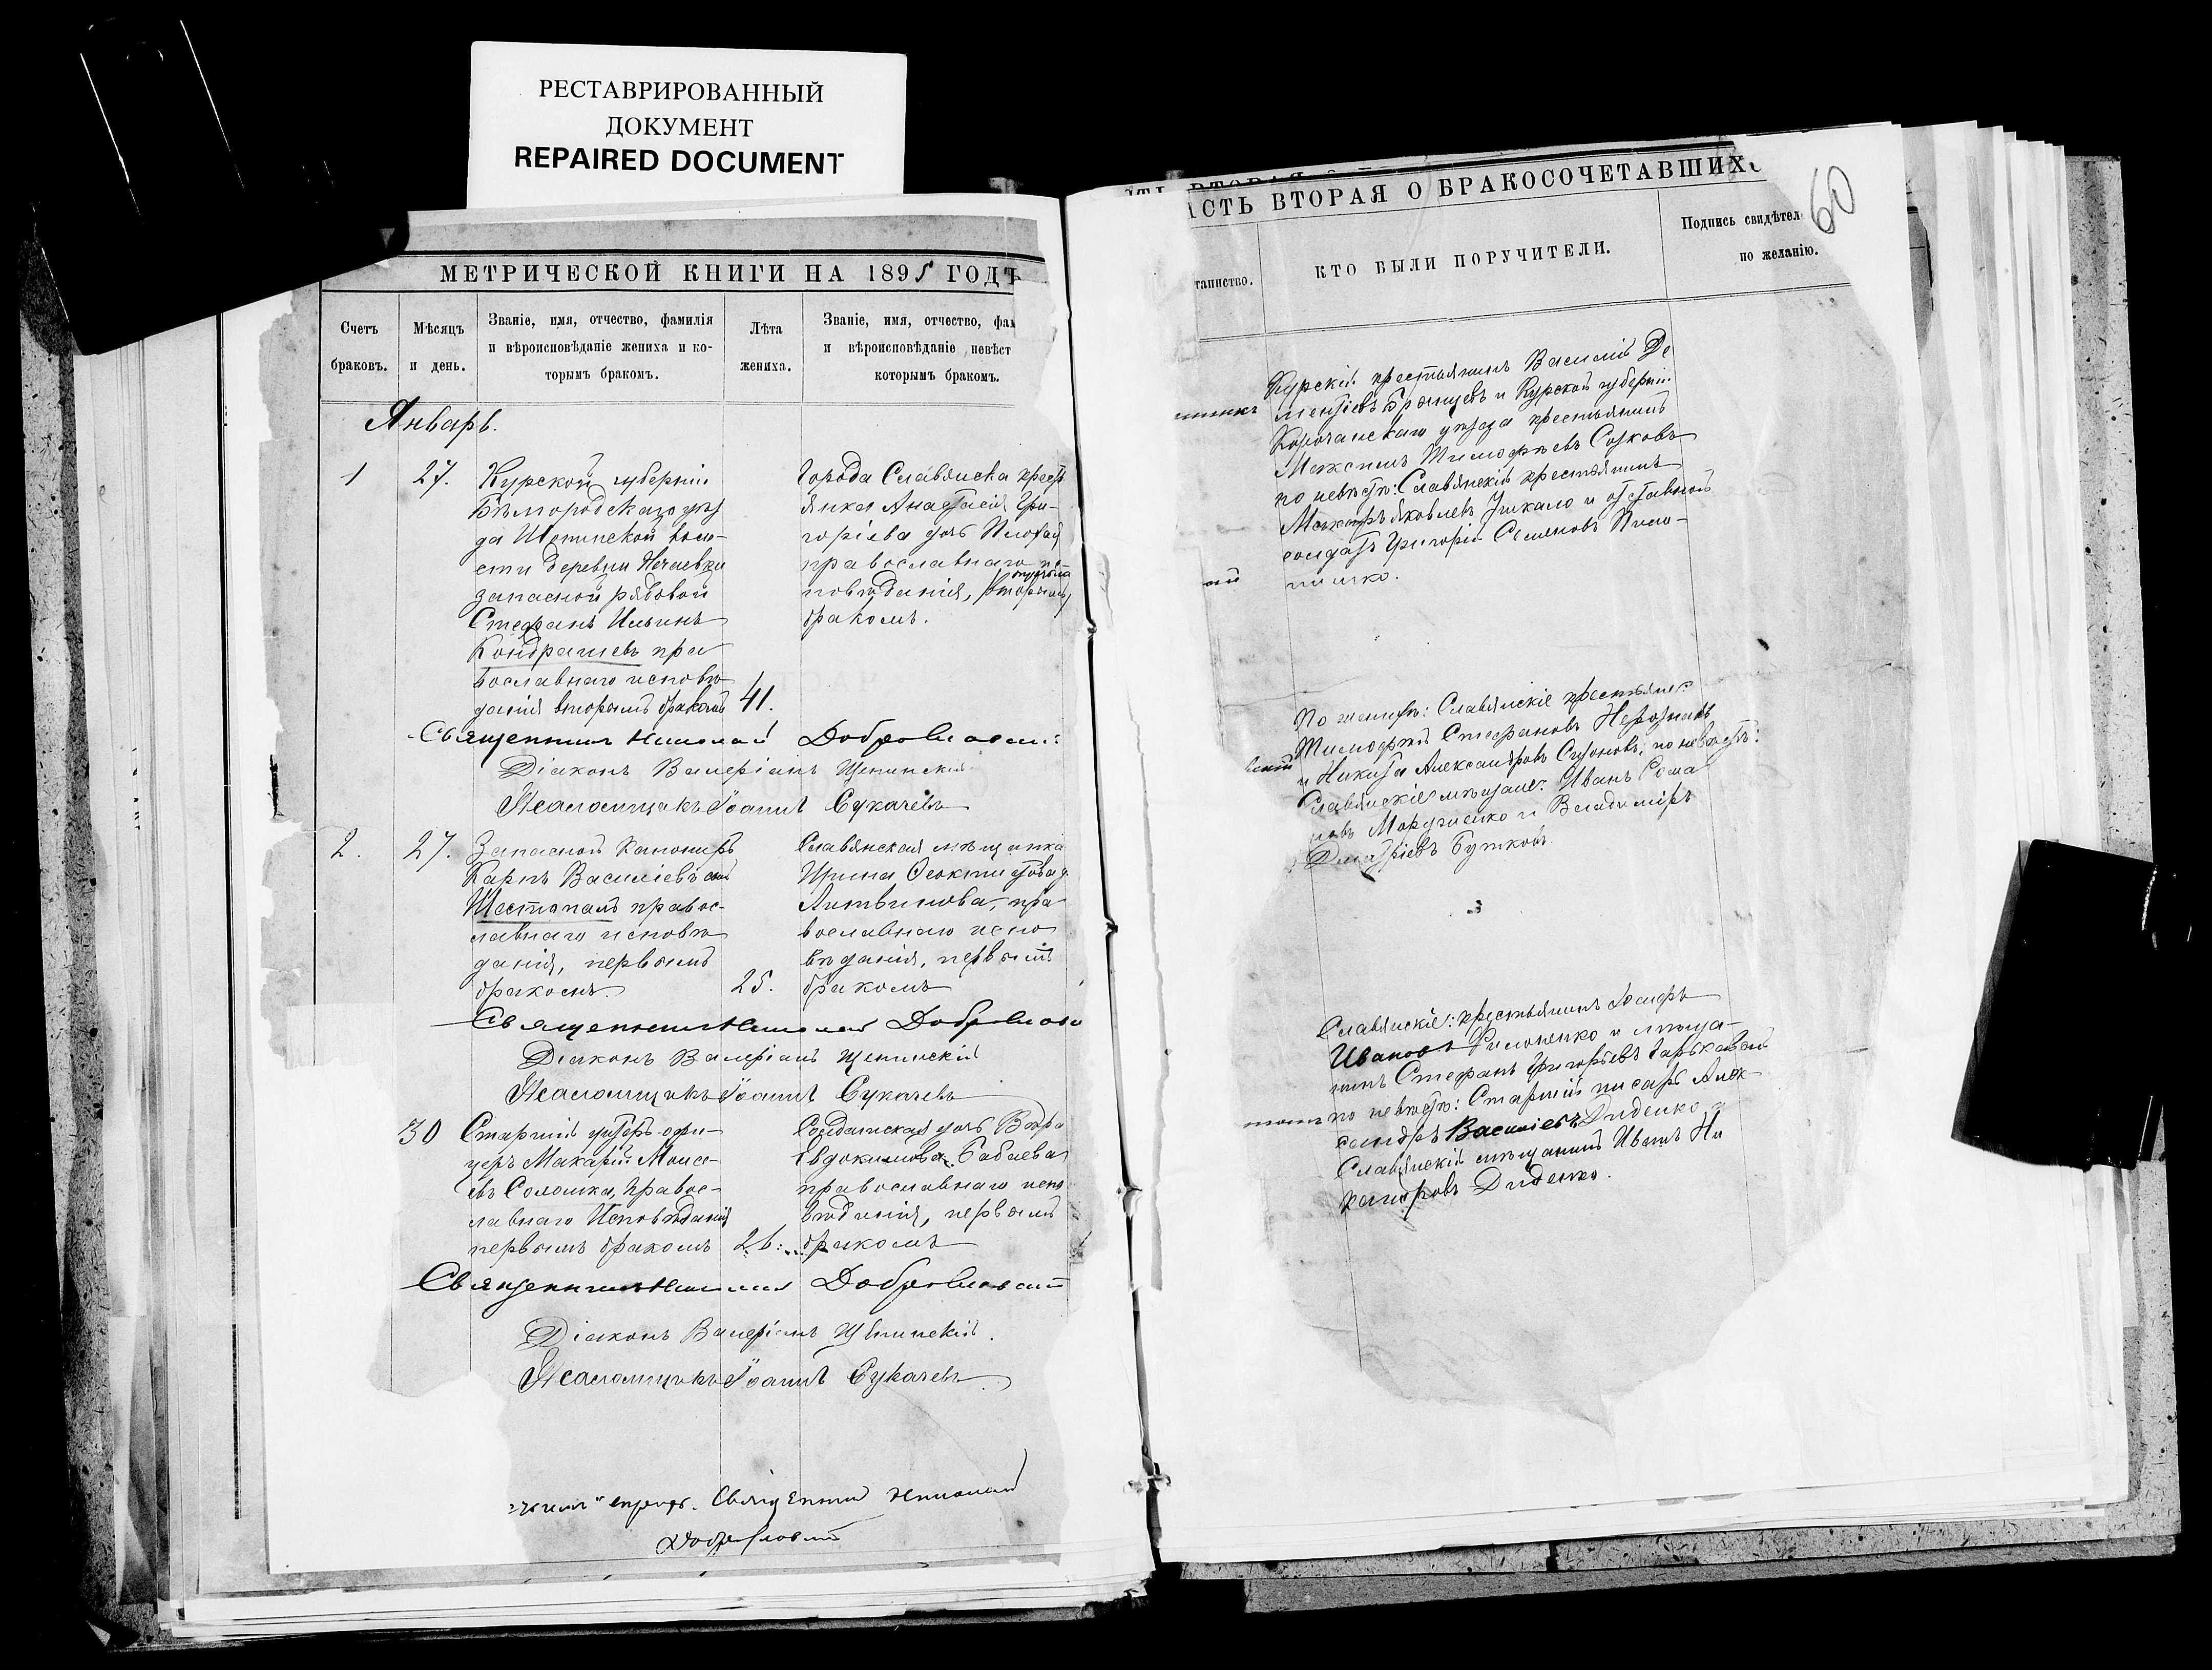 РЕСТАВРИРОВАННЫЙ
ДОКУМЕНТ
REPAIRED DOCUMENT
МЕТРИЧЕСКОЙ КНИГИ НА 1895 ГОДЪ
Счетъ
браковъ.
Мѣсяцъ
и день.
Званіе, имя, отчество, фамилія
и вѣроисповѣданіе жениха и ко-
торымъ бракомъ.
Лѣта
жениха.
Званіе, имя, отчество, фам
и вѣроисповѣданіе невѣст
которымъ бракомъ.
Январь.
1
27.
Курской губерніи
Бѣлгородскаго уѣз
да Шопинской воло-
сти деревни Нечаевки
запасной рядовой
Стефанъ Ильинъ
Кондрашевъ пра
вославнаго исповѣ
данія вторымъ бракомъ
41.
Города Славянска крест
янка Анастасія Гри-
горіева дочь
православнаго ис-
повѣданія, вторымъ
бракомъ.
Священникъ Николай Доброславскій
Діаконъ Валеріанъ Щепинскій
Псаломщикъ Іоаннъ Сукачевъ
2.
27.
Запасной канониръ
Карпъ Василіевъ сынъ
Шестопалъ правос-
лавнаго исповѣ
данія, первымъ
бракомъ.
25.
Славянская мѣщанка
Ирина Феоктистова д.
Литвинова, пра-
вославнаго испо
вѣданія, первымъ
бракомъ
Священникъ Николай Доброславс
Діаконъ Валеріанъ Щепинскій
Псаломщикъ Іоаннъ Сукачевъ
30
Старшій унтеръ-офи-
церъ Макарій Моисе-
евъ Соломка, правос-
лавнаго Исповѣданія
первымъ бракомъ
26.
Солдатская дочь Вѣра
Евдокимова Бабаева
православнаго испо
вѣданія, первымъ
бракомъ
Священникъ Николай Доброславскій
Діаконъ Валеріанъ Щепинскій.
Псаломщикъ Іоаннъ Сукачевъ
Священникъ Николай
Доброславскій
АСТЬ ВТОРАЯ О БРАКОСОЧЕТАВШИХС
60
таинство.
КТО БЫЛИ ПОРУЧИТЕЛИ.
Подпись свидѣтел
по желанію.
Курскій крестьянинъ Василій Де
ментіевъ Брянцевъ и Курской губерніи
Корочанскаго уѣзда крестьянинъ
Максимъ Тимофѣевъ
по невѣстѣ: Славянскій крестьянинъ
Яковлевъ и отставной
солдатъ Григорій Семеновъ
По женихѣ: Славянскіе крестьяне:
Тимофей Стефановъ
и Никита Александровъ по невѣстѣ:
Славянскіе мѣщане: Иванъ Рома
новъ и Владиміръ
Дмитріевъ Бутковъ.
Славянскіе: крестьянинъ Іосифъ
Ивановъ Филоненко и мѣща-
нинъ Стефанъ Григорьевъ
по невѣстѣ: Старшій писарь Алек-
сандръ Василіевъ Диденко и
Славянскій мѣщанинъ Иванъ Ни
каноровъ Диденко.